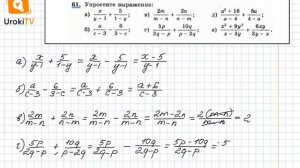 UrokiTV
61. Упростите выражение:
а) x/(y-1) + 5/(1-y); в) 2m/(m-n) + 2n/(n-m);
б) a/(c-3) - 6/(3-c); г) 5p/(2q-p) + 10q/(p-2q);
а) x/(y-1) + 5/(1-y) = x/(y-1) - 5/(y-1) = (x-5)/(y-1)
б) a/(c-3) - 6/(3-c) = a/(c-3) + 6/(c-3) = (a+6)/(c-3)
в) 2m/(m-n) + 2n/(n-m) = 2m/(m-n) - 2n/(m-n) = (2m-2n)/(m-n) = 2(m-n)/(m-n) = 2
г) 5p/(2q-p) + 10q/(p-2q) = 5p/(2q-p) - 10q/(2q-p) = (5p-10q)/(2q-p) =